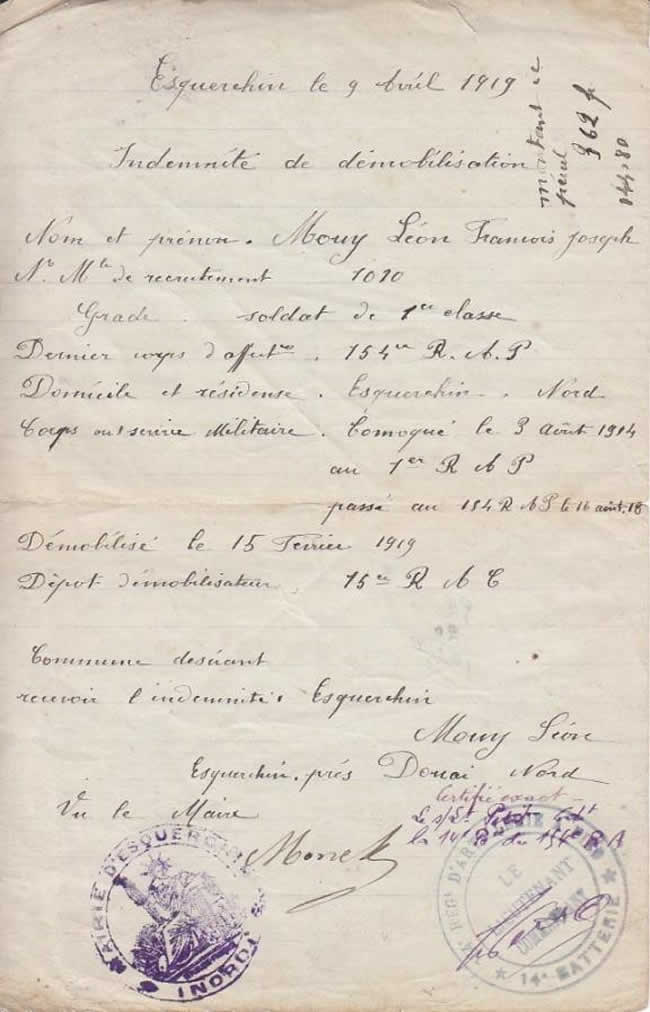 Esquerchin le 9 Avril 1919
montant de
362 f
144.80
Indemnité de démobilisation
Nom et prénon. Mouy Léon Francois Joseph
N° Mle de recrutement 1010
Grade. soldat de 1ère classe
Dernier corps d'affecton. 154me R. A. P
Domicile et résidense. Esquerchin. Nord
Corps ou service Militaire. Comoqué le 3 Août 1914
au 1er R A P
passé au 154 R A P le 16 août. 18
Démobilisé le 15 Ferrier 1919
Dépot démobilisateur 15me R A C
Commune desirant
recevoir l'indemnité: Esquerchin
Mouy Léon
Esquerchin. prés Douai Nord
Vu le Maire
Certifié exact
Le s/Lt Cdt
la 14e B du 154e R A
MAIRIE D'ESQUERCHIN (NORD)
LE LIEUTENANT COMMANDANT
14e BATTERIE